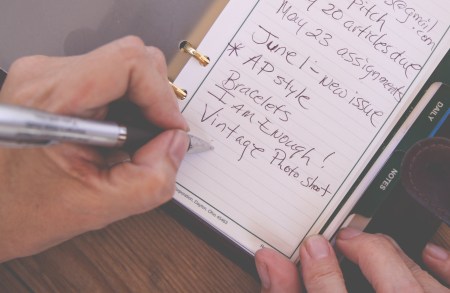 @gmail.com
Pitch
May 20 articles due
May 23 assignments
June 1 - New issue
* AP style
Bracelets
I AM Enough!
Vintage Photo Shoot
DAILY
NOTES